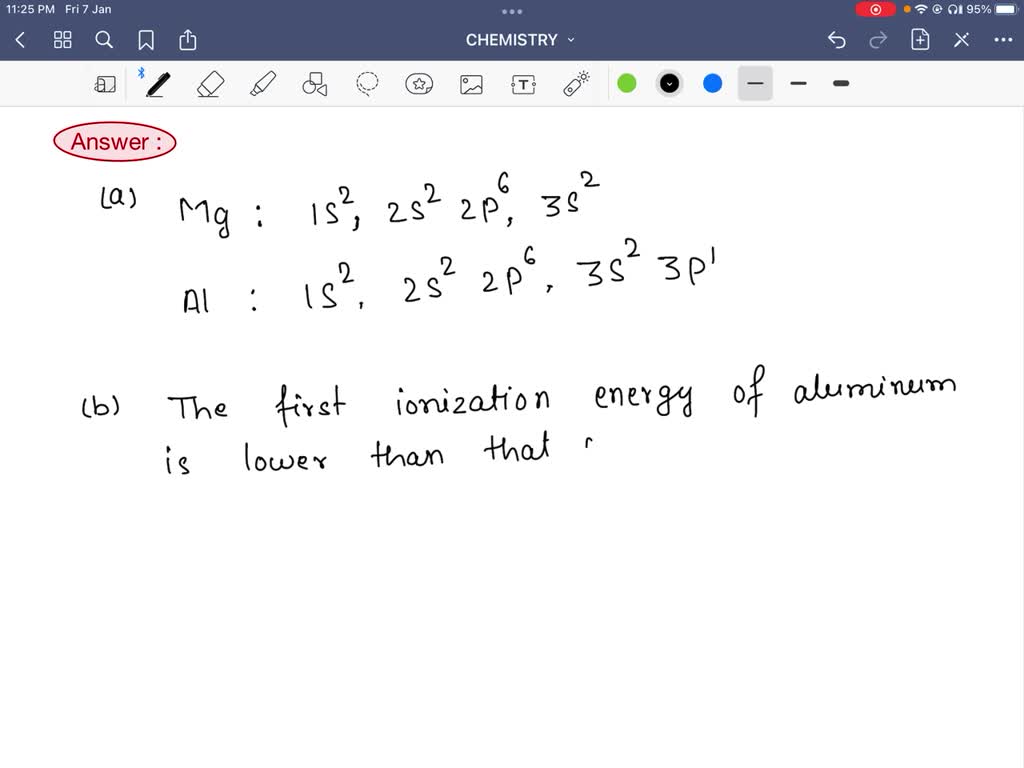 11:25 PM Fri 7 Jan 95%
CHEMISTRY
T
Answer :
(a) Mg : 1s², 2s² 2p⁶, 3s²
Al : 1s², 2s² 2p⁶, 3s² 3p¹
(b) The first ionization energy of aluminum
is lower than that